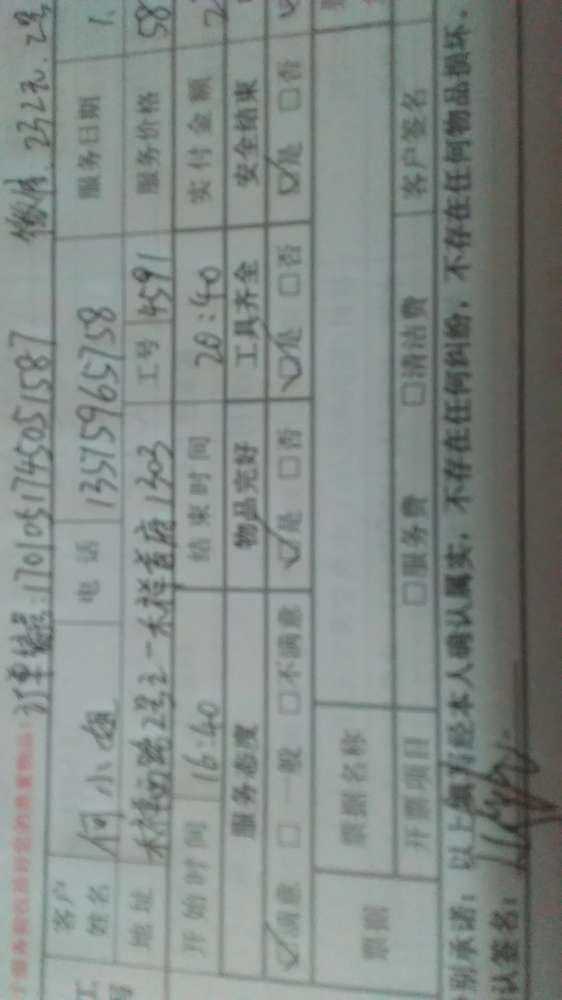 订单编号:1701051745051587 微信 232元.2号
客户姓名 何小姐 电话 13575965758 服务日期 1.
地址 1303 工号 4591 服务价格 58
开始时间 16:40 结束时间 20:40 实付金额 2
服务态度 物品完好 工具齐全 安全结束
☑满意 □一般 □不满意 ☑是 □否 ☑是 □否 ☑是 □否
票据 票据名称
开票项目 □服务费 □清洁费 客户签名
别承诺:以上填写经本人确认属实,不存在任何纠纷,不存在任何物品损坏.
认签名: